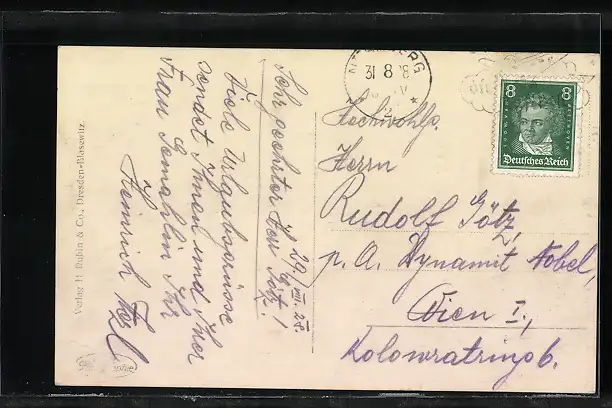 29./VIII. 28.
Sehr geehrter Herr Götz!
Viele Urlaubsgrüsse
sendet Ihnen und Ihrer
Frau Gemahlin Ihr
Heinrich
31 8 28
8 8
BEETHOVEN
Deutsches Reich
Hochwohlg.
Herrn
Rudolf Götz,
p. A. Dynamit Nobel,
Wien I.,
Kolowratring 6.
Verlag H. Rubin & Co., Dresden-Blasewitz.